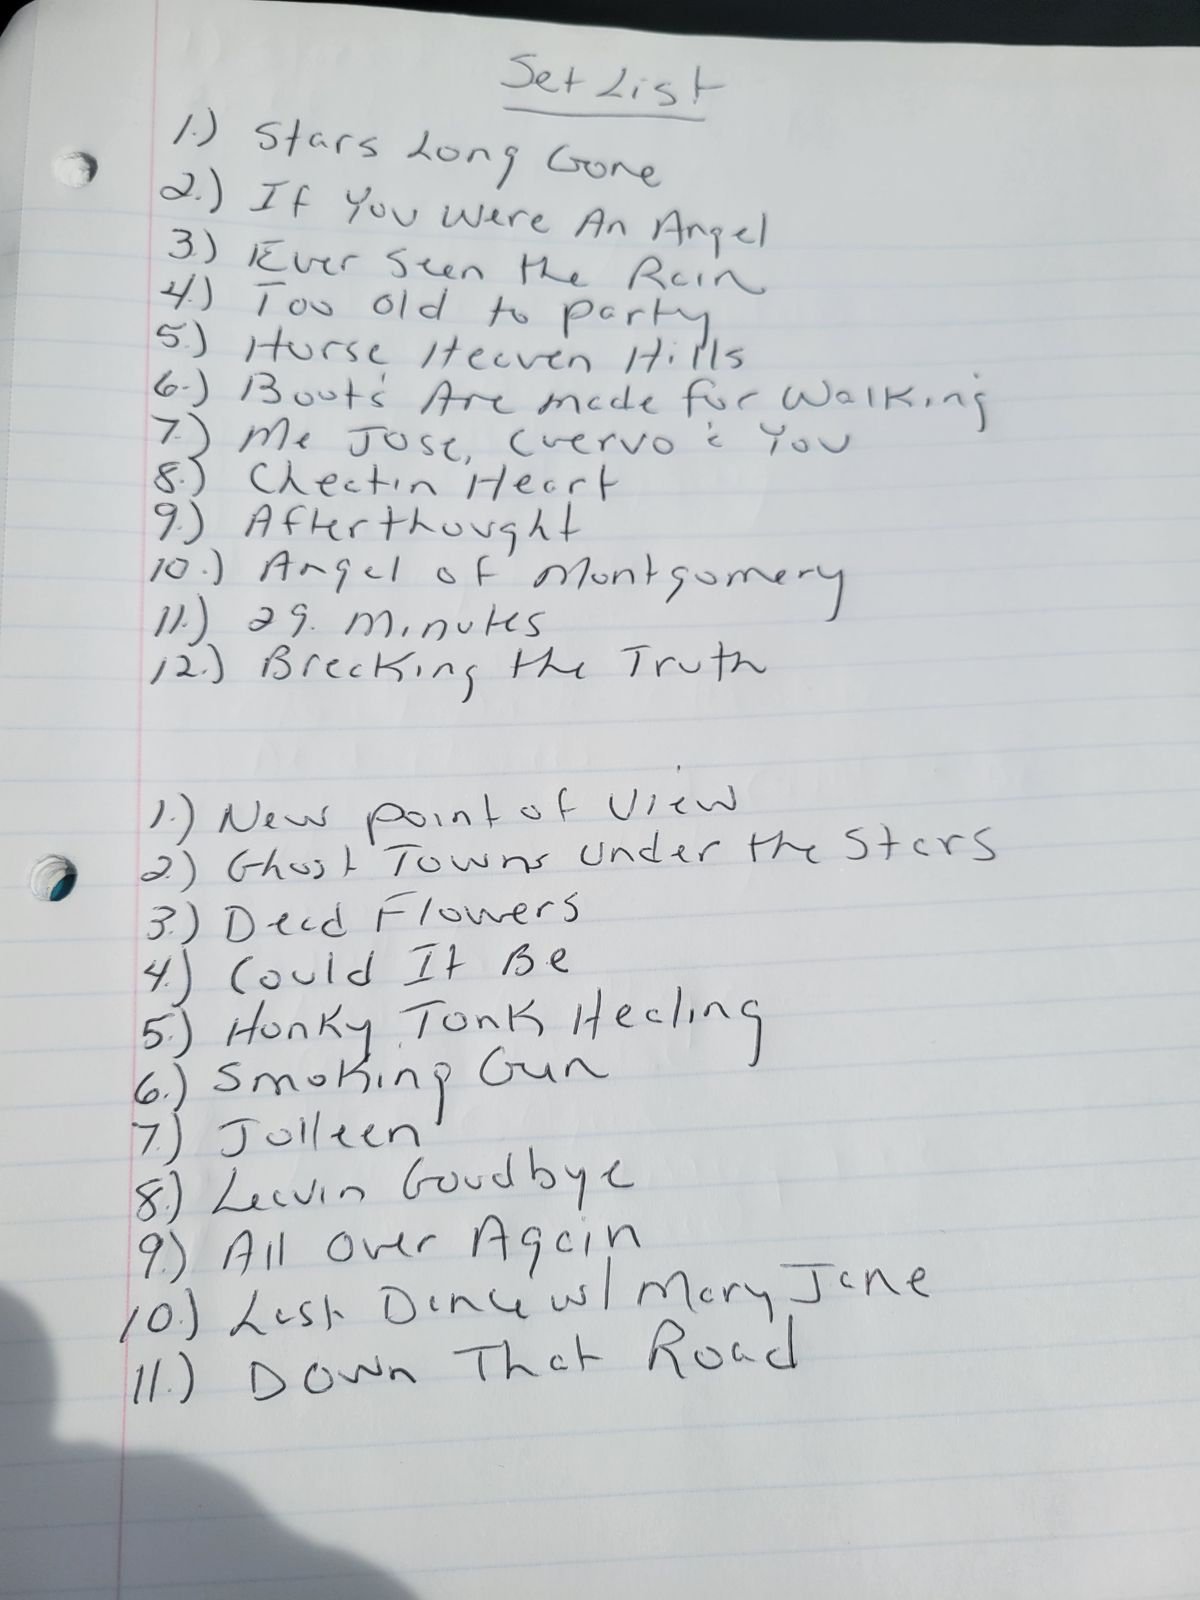 Set List
1.) Stars Long Gone
2.) If You Were An Angel
3.) Ever Seen the Rain
4.) Too Old to Party
5.) Horse Heaven Hills
6.) Boots Are made for Walking
7.) Me Jose, Cuervo & You
8.) Cheatin Heart
9.) Afterthought
10.) Angel of Montgomery
11.) 29 Minutes
12.) Breaking the Truth
1.) New Point of View
2.) Ghost Towns Under the Stars
3.) Dead Flowers
4.) Could It Be
5.) Honky Tonk Healing
6.) Smoking Gun
7.) Jolleen
8.) Leavin Goodbye
9.) All Over Again
10.) Last Dance w/ Mary Jane
11.) Down That Road